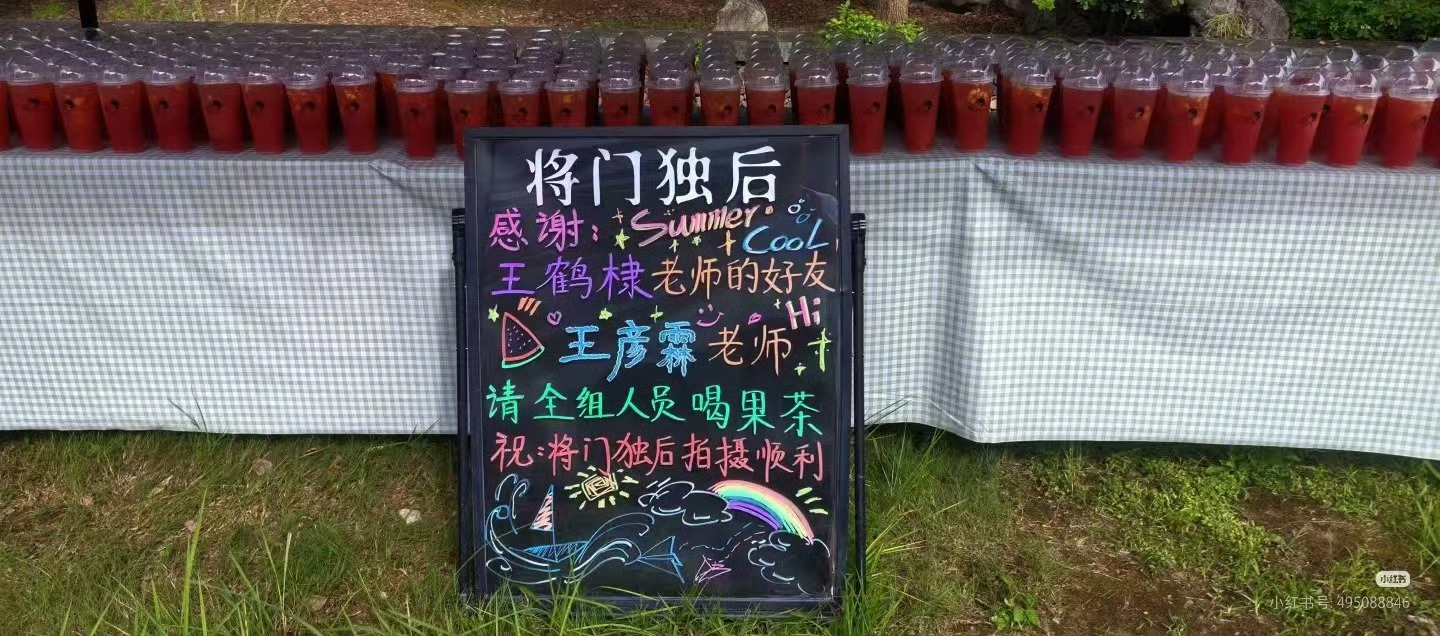 将门独后
感谢：Summer
COOL
王鹤棣老师的好友
Hi
王彦霖老师
请全组人员喝果茶
祝：将门独后拍摄顺利
小红书
小红书号: 495088846